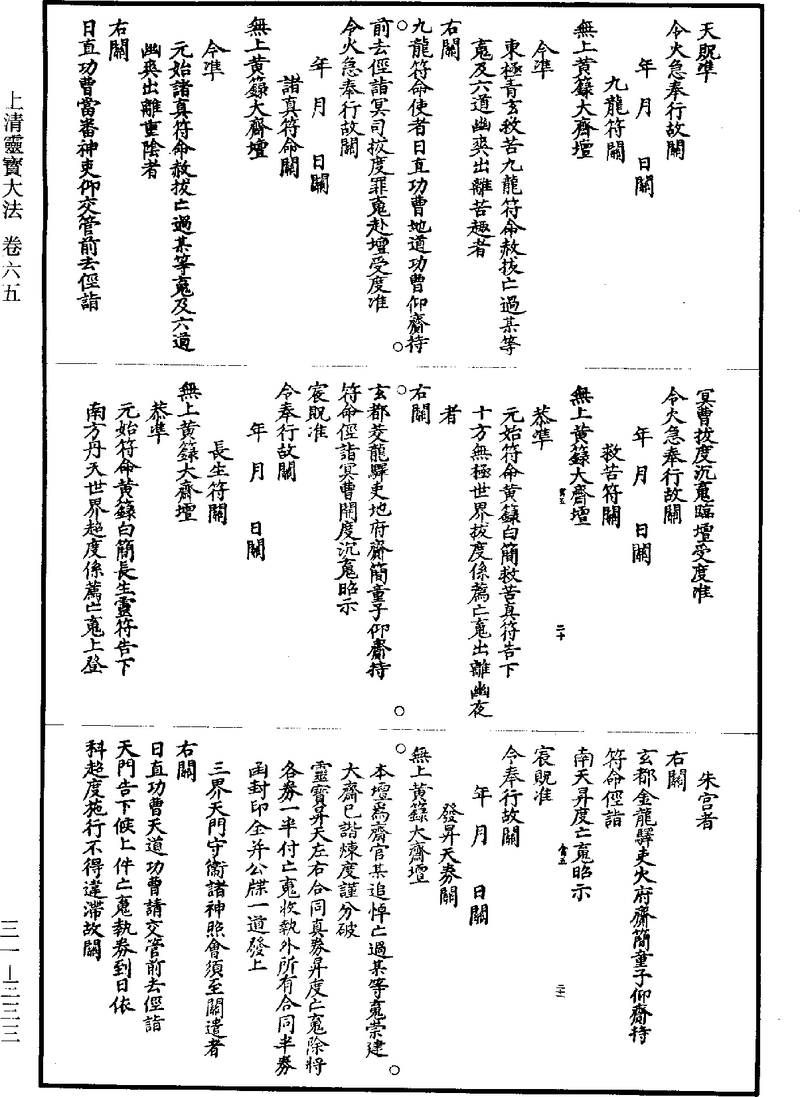 上清靈寶大法 卷六五
三一—三三三
天貺準
令火急奉行故關
年 月 日關
九龍符關
無上黃籙大齋壇
今準
東極青玄救苦九龍符命赦拔亡過某等
䰟及六道幽爽出離苦趣者
右關
九龍符命使者日直功曹地道功曹仰齎持
前去徑詣冥司拔度罪䰟赴壇受度准
令火急奉行故關
年 月 日關
諸真符命關
無上黃籙大齋壇
今準
元始諸真符命赦拔亡過某等䰟及六道
幽爽出離重陰者
右關
日直功曹當番神吏仰交管前去徑詣
冥曹拔度沉䰟臨壇受度准
令火急奉行故關
年 月 日關
救苦符關
無上黃籙大齋壇
恭準
元始符命黃籙白簡救苦真符告下
二十
十方無極世界拔度係薦亡䰟出離幽夜
者
右關
玄都茭龍驛吏地府齎簡童子仰齎持
符命徑詣冥曹開度沉䰟昭示
宸貺准
令奉行故關
年 月 日關
長生符關
無上黃籙大齋壇
恭準
元始符命黃籙白簡長生靈符告下
南方丹天世界超度係薦亡䰟上登
朱宮者
右關
玄都金龍驛吏火府齎簡童子仰齎持
符命徑詣
南天昇度亡䰟昭示
二十一
宸貺准
令奉行故關
年 月 日關
發昇天券關
無上黃籙大齋壇
本壇為齋官某追悼亡過某等䰟崇建
大齋已諧煉度謹分破
靈寶昇天左右合同真券昇度亡䰟除將
各券一半付亡䰟收執外所有合同半券
函封印全并公牒一道發上
三界天門守衛諸神照會須至關遣者
右關
日直功曹天道功曹請交管前去徑詣
天門告下候上件亡䰟執券到日依
科超度施行不得違滯故關